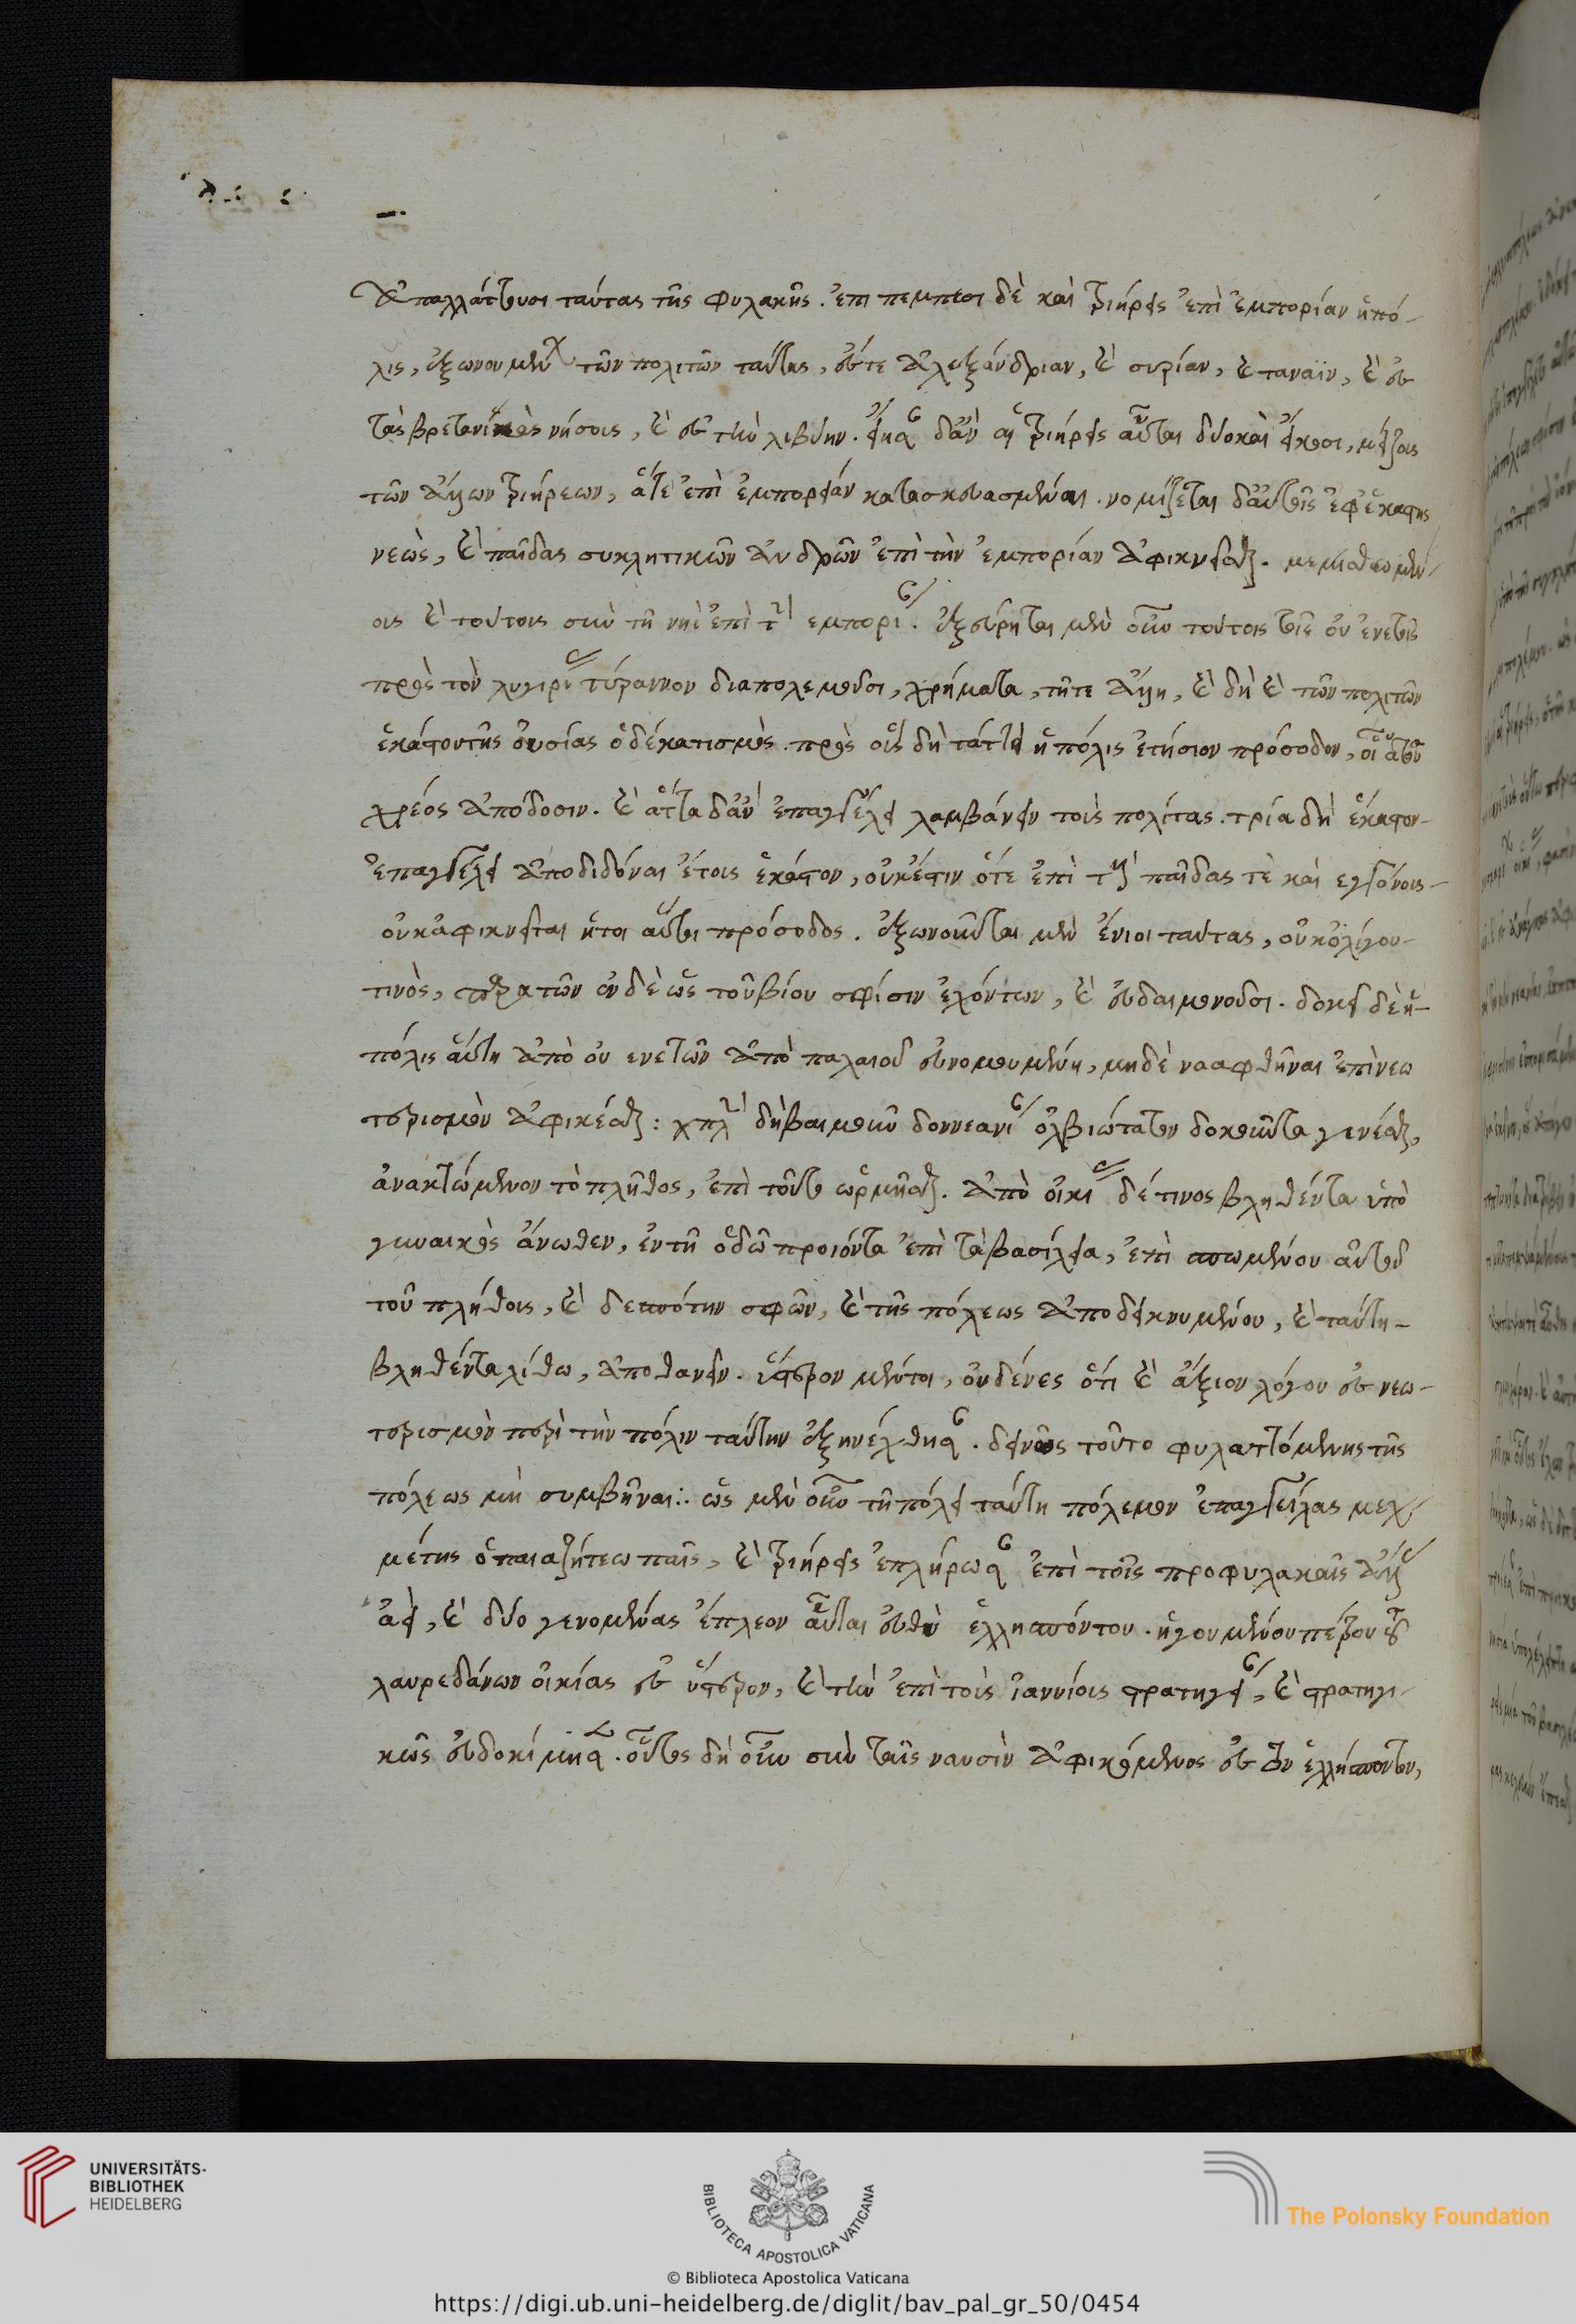 ἀπαλλάττουσι ταύτας τῆς φυλακῆς. ἐπι πεμπει δὲ καὶ τριήρεις ἐπὶ ἐμπορίαν ἡ πό-
λις, ἐξωνουμεν τῶν πολιτῶν ταύτης, ἔς τε ἀλεξάνδριαν, καὶ συρίαν, καὶ ταναϊν, καὶ ἐς
τὰς βρετανικὰς νήσους, καὶ ἐς τὴν λιβύην. εἴησαν δ' ἂν αἱ τριήρεις αὗται δύο καὶ εἴκοσι, μείζους
τῶν ἄλλων τριήρεων, ἅτε ἐπὶ ἐμπορείαν κατασκευασμέναι. νομίζεται δ' αὐτοῖς ἐφ' ἑκάστης
νεὼς, καὶ παῖδας συκλητικῶν ἀνδρῶν ἐπὶ τὴν ἐμπορίαν ἀφικνεῖσθαι. μεμισθωμέν
οις καὶ τούτοις σὺν τῇ νηὶ ἐπὶ τὴν εμπορίαν. ἐξεύρηται μὲν οὖν τούτοις τοῖς οὐενετοῖς
πρὸς τὸν λυγίρων τύραννον διαπολεμοῦσι, χρήματα, τῆ τε ἄλλη, καὶ δὴ καὶ τῶν πολιτῶν
ἑκάστου τῆς οὐσίας ὁ δέκατισμὸς. πρὸς οἷς δὴ τάττει ἡ πόλις ἐτήσιον πρόσοδον,
χρέος ἀπόδοσιν. καὶ ἅττα δ' ἂν ἐπαγγέλλει λαμβάνειν τοὺς πολίτας. τρία δὴ ἑκάστου
ἐπαγγέλλει ἀποδιδόναι ἔτους ἑκάστου, οὐκέστιν ὅτε ἐπὶ τοὺς παῖδας τὲ καὶ εγγόνους
οὐκ ἀφικνεῖται ἥτοι αὕτη πρόσοδος. ἐξωνοῦνται μὲν ἔνιοι ταύτας, οὐκ ὀλίγου
τινὸς, παρὰ τῶν ἐνδεῶς τοῦ βίου σφίσιν ἐχόντων, καὶ εὐδαιμονοῦσι. δοκεῖ δὲ ἡ
πόλις αὕτη ἀπὸ οὐενετῶν ἀπὸ παλαιοῦ εὐνομουμένη, μηδὲ ναφθῆναι ἐπὶ νεω
τερισμὸν ἀφικέσθαι: πλὴν δὴ βαιμοῦν δοννεανι ὀλβιώτατον δοκοῦντα γενέσθαι,
ἀνακτώμενον τὸ πλῆθος, ἐπὶ τοῦτο ὡρμῆσθαι. ἀπὸ οἰκίας δέ τινος βληθέντα ὑπὸ
γυναικὸς ἄνωθεν, ἐν τῇ ὁδῶ προιόντα ἐπὶ τὰ βασίλεια, ἐπὶ σπωμένου αὐτοῦ
τοῦ πλήθους, καὶ δεσπότην σφῶν, καὶ τῆς πόλεως ἀποδεικνυμένου, καὶ ταύτη
βληθέντα λίθω, ἀποθανεῖν. ὕστερον μέντοι, οὐδένες ὅτι καὶ ἄξιον λόγου ἐς νεω-
τερισμὸν περὶ τὴν πόλιν ταύτην ἐξηνέχθησαν. δεινῶς τοῦτο φυλαττόμενης τῆς
πόλεως μὴ συμβῆναι:. ὡς μὲν οὖν τῇ πόλει ταύτη πόλεμον ἐπαγγείλας μεχ
μέτης ὁ παιαζήτεω παῖς, καὶ τριήρεις ἐπλήρωσαν ἐπὶ τοῖς προφυλακαῖς
καὶ δύο γενομένας ἔπλεον αὗται εὐθὺ ἑλλησπόντου. ἡγουμένου πέτρου τοῦ
λαυρεδάνων οἰκίας ἐς ὕστερον, καὶ τὴν ἐπὶ τοὺς ἰαννίους στρατηγίαν, καὶ στρατηγι
κῶς εὐδοκίμησαν. οὗτος δὴ οὖν σὺν ταῖς ναυσὶν ἀφικόμενος ἐς τὸν ἑλλήσποντον,
UNIVERSITÄTS-
BIBLIOTHEK
HEIDELBERG
BIBLIOTECA APOSTOLICA VATICANA
The Polonsky Foundation
© Biblioteca Apostolica Vaticana
https://digi.ub.uni-heidelberg.de/diglit/bav_pal_gr_50/0454